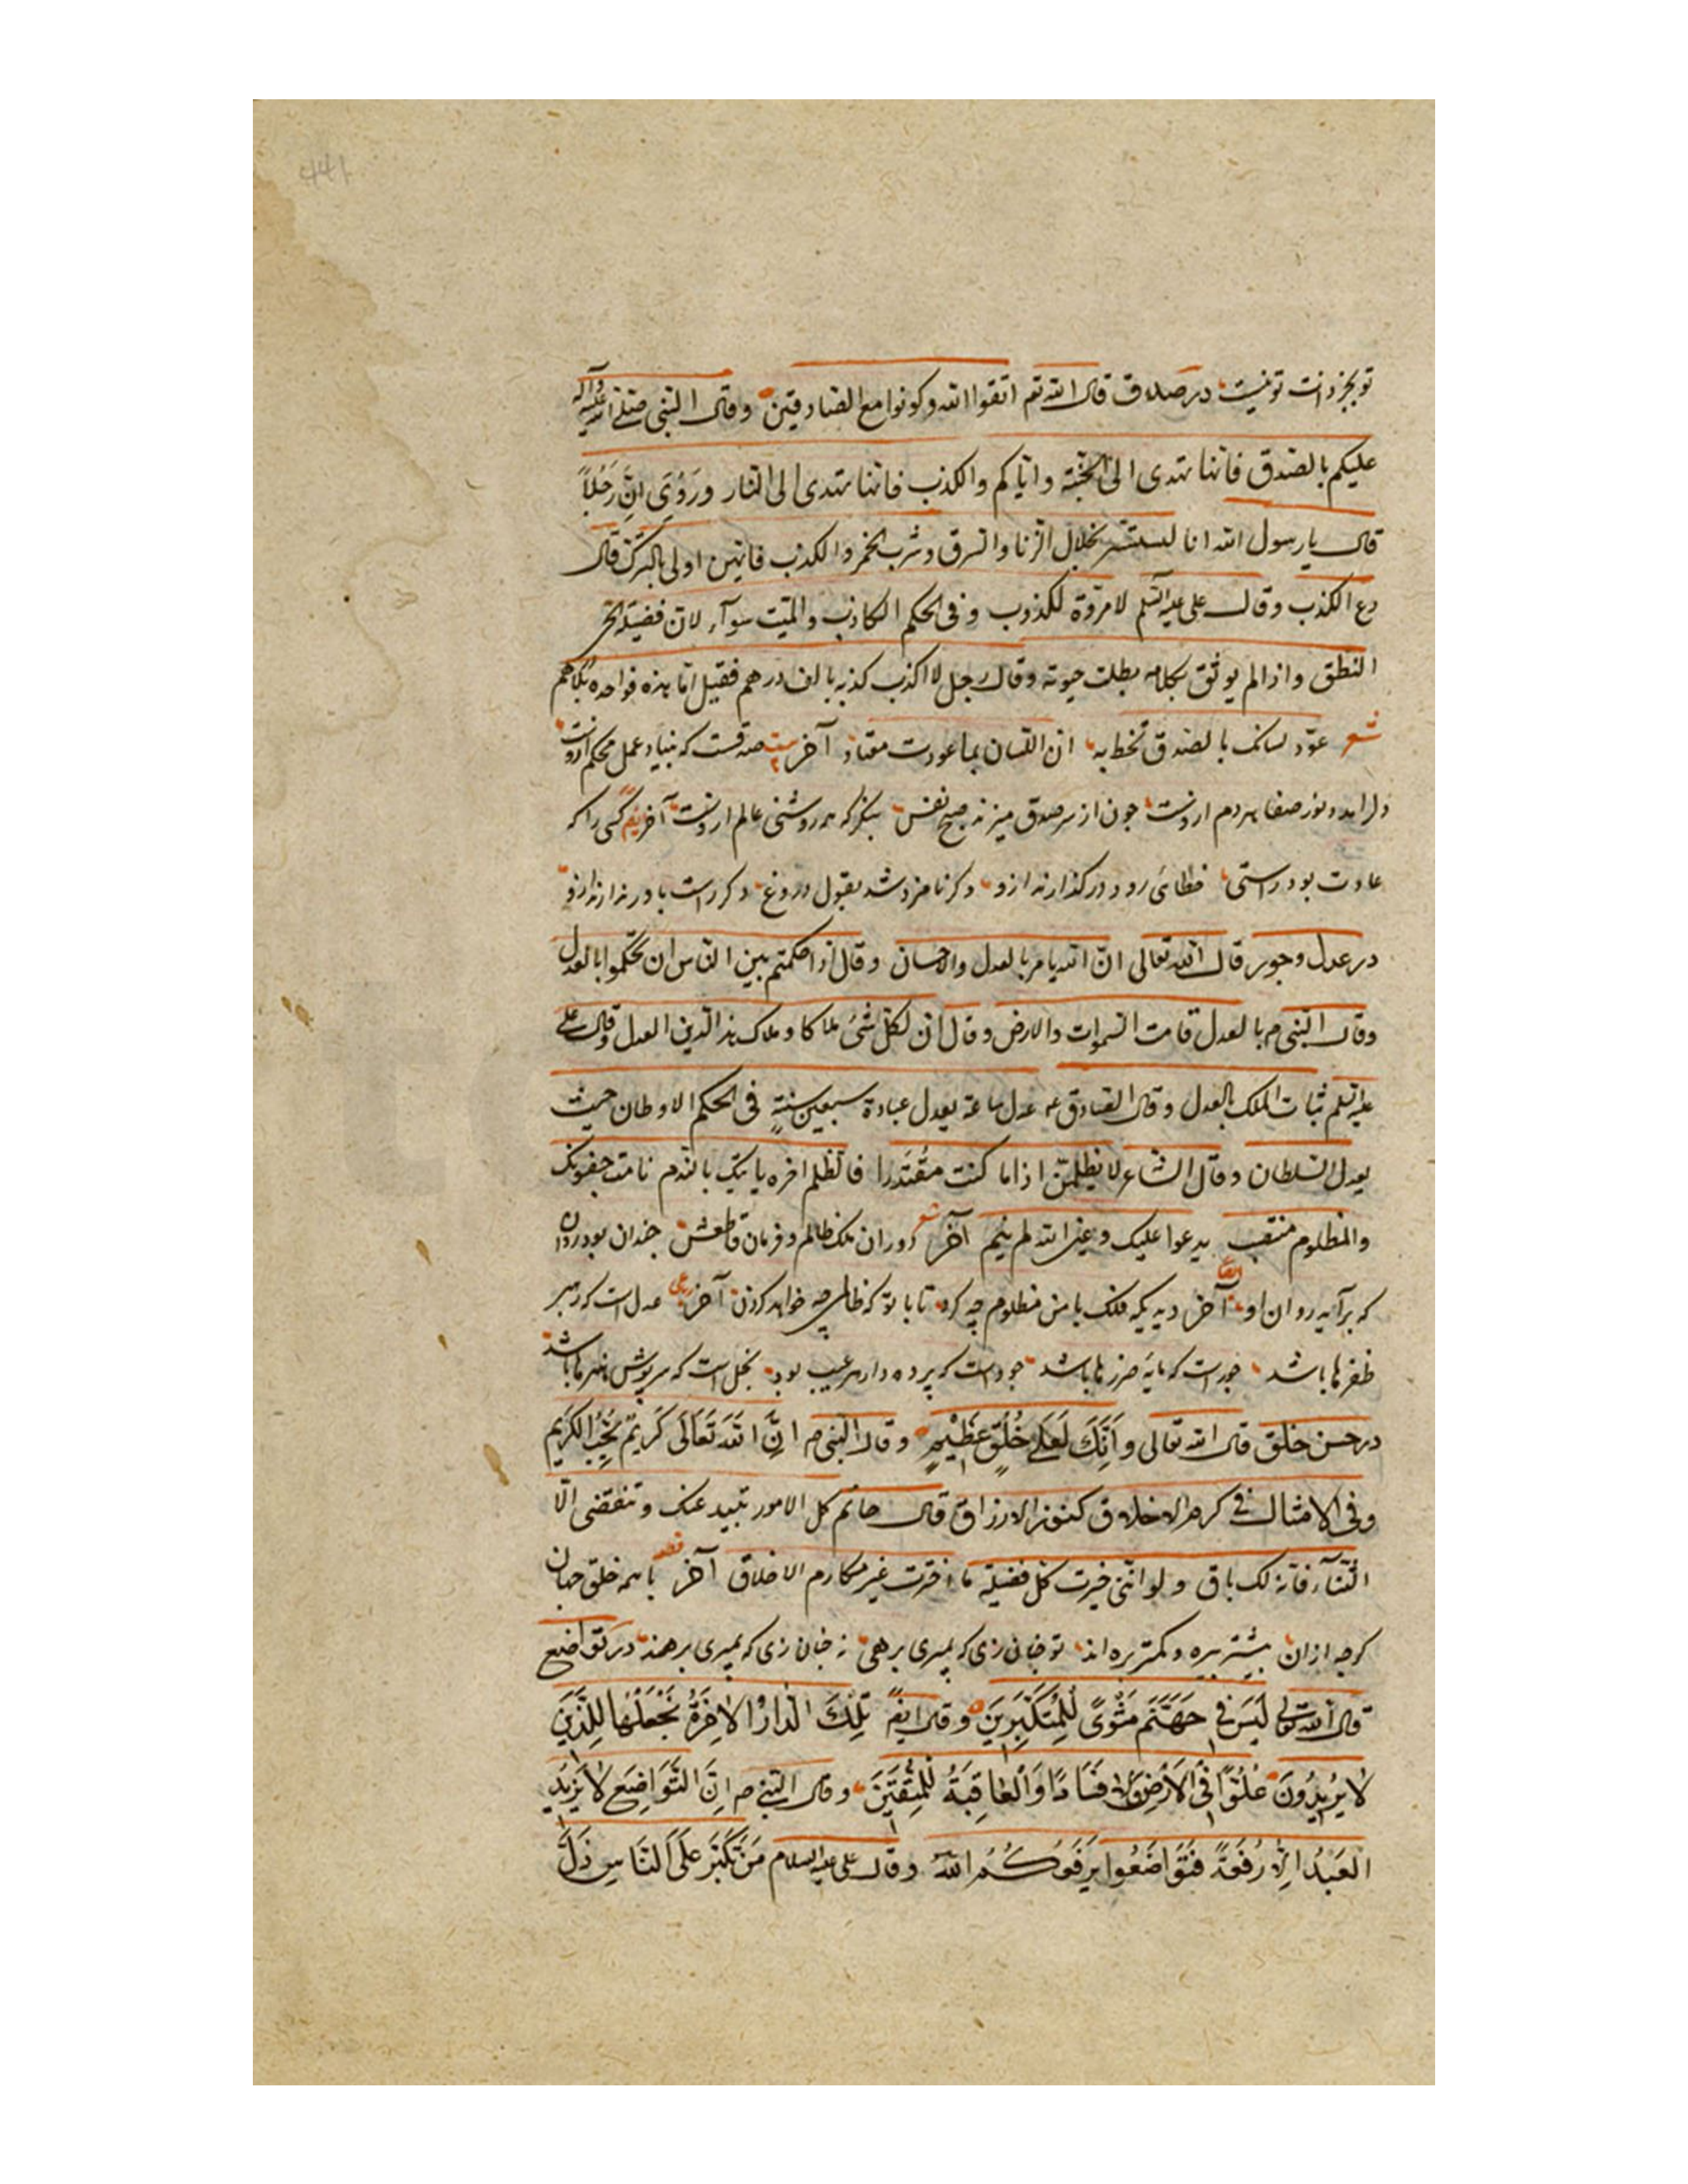 تو بجز دانت تو نیست در صدق قال الله تم اتقوا الله وکونوا مع الصادقین وقال النبی صلی الله علیه وآله
علیکم بالصدق فانها تهدی الی الجنة وایاکم والکذب فانها تهدی الی النار ورَوُیَ اِنَّ رَجُلاً
قال یا رسول الله انا لستسر بخلال الزنا والسرق وشرب الخمر والکذب فایهن اولی بالترک قال
دع الکذب وقال علی علیه السلم لا مروة للکذوب وفی الحکم الکاذب والمیت سوآء لان فضیلة الحی
النطق واذا لم یوثق بکلامه بطلت حیوته وقال رجل لا اکذب کذبه بالف درهم فقیل اما هذه فواحده بلادرهم
شعر عوّد لسانک بالصدق تخط به ان اللسان بما عودت معتاد آخر بیت صدقست که بنیاد عمل محکم ازوست
دلرا مدد نور صفا هر دم ازوست چون از سر صدق میزند صبح نفس بنگر که همه روشنی عالم ازوست آخر نظم کسی را که
عادت بود راستی خطائی رود در گذارند ازو وکر نامزد شد بقول دروغ دکر راست باور ندارند ازو
در عدل وجور قال الله تعالی ان الله یامر بالعدل والاحسان وقال اذا حکمتم بین الناس ان تحکموا بالعدل
وقال النبی ص بالعدل قامت السموات والارض وقال ان لکل شئ ملاکا وملاک هذا الدین العدل وقال علی
علیه السلم ثبات الملک بالعدل وقال الصادق ع عدل ساعة یعدل عبادة سبعین سنةٍ فی الحکم الاوطان حیث
یعدل السلطان وقال الشاعر لا تظلمن اذا ما کنت مقتدرا فالظلم اخره یاتیک بالندم نامت جفونک
والمظلوم منتصب یدعوا علیک وعین الله لم ینم آخر شعر دوران ملک ظالم وفرمان قاطعش چندان بود روان
که برآید روان او ایضا آخر دیدیکه فلک با من مظلوم چه کرد تا با تو که ظالمی چه خواهد کردن آخر رباعی عدل است که رهبر
ظفرها باشد جورست که مایه ضررها باشد جودست که پرده دار هر عیب بود بخل است که سرپوش هنرها باشد
در حسن خلق قال الله تعالی وَاَنَّکَ لَعَلی خُلُقٍ عَظِیمٍ وقال النبی ص اِنَّ اللهَ تَعَالَی کَرِیمٌ یُحِبُّ الکَرِیم
وفی الامثال فی کرم الاخلاق کنوز الارزاق قال حاتم کل الامور تبید عنک وتنقضی الّا
الثنآء فانه لک باق ولو اننی خیرت کل فضیلة ما اخترت غیر مکارم الاخلاق آخر با همه خلق جهان
کرچه ازان بیشتر بیره وکمتر بره اند تو چنان زی که بمیری برهی نه چنان زی که بمیری برهند در تواضع
قال الله تعالی لَیسَ فی جَهَنَّمَ مَثْوًی لِلمُتَکَبِرِینَ وقال ایضً تِلکَ الدارُ الآخِرَةُ نَجْعَلُهَا لِلَّذِینَ
لا یُریدُونَ عُلُوًّا فِی الاَرْضِ ولا فَسَادًا وَالعَاقِبَةُ لِلمُتَّقِینَ وقال النبی ص اِنَّ التَّوَاضِعَ لا یَزِیدُ
العَبدُ اِلّا رُفعَةً فَتَوَاضَعُوا یَرفَعَکُمُ اللهُ وقال علی علیه السلام مَنْ تَکَبَّرَ عَلَی النَاسِ ذَلَّ